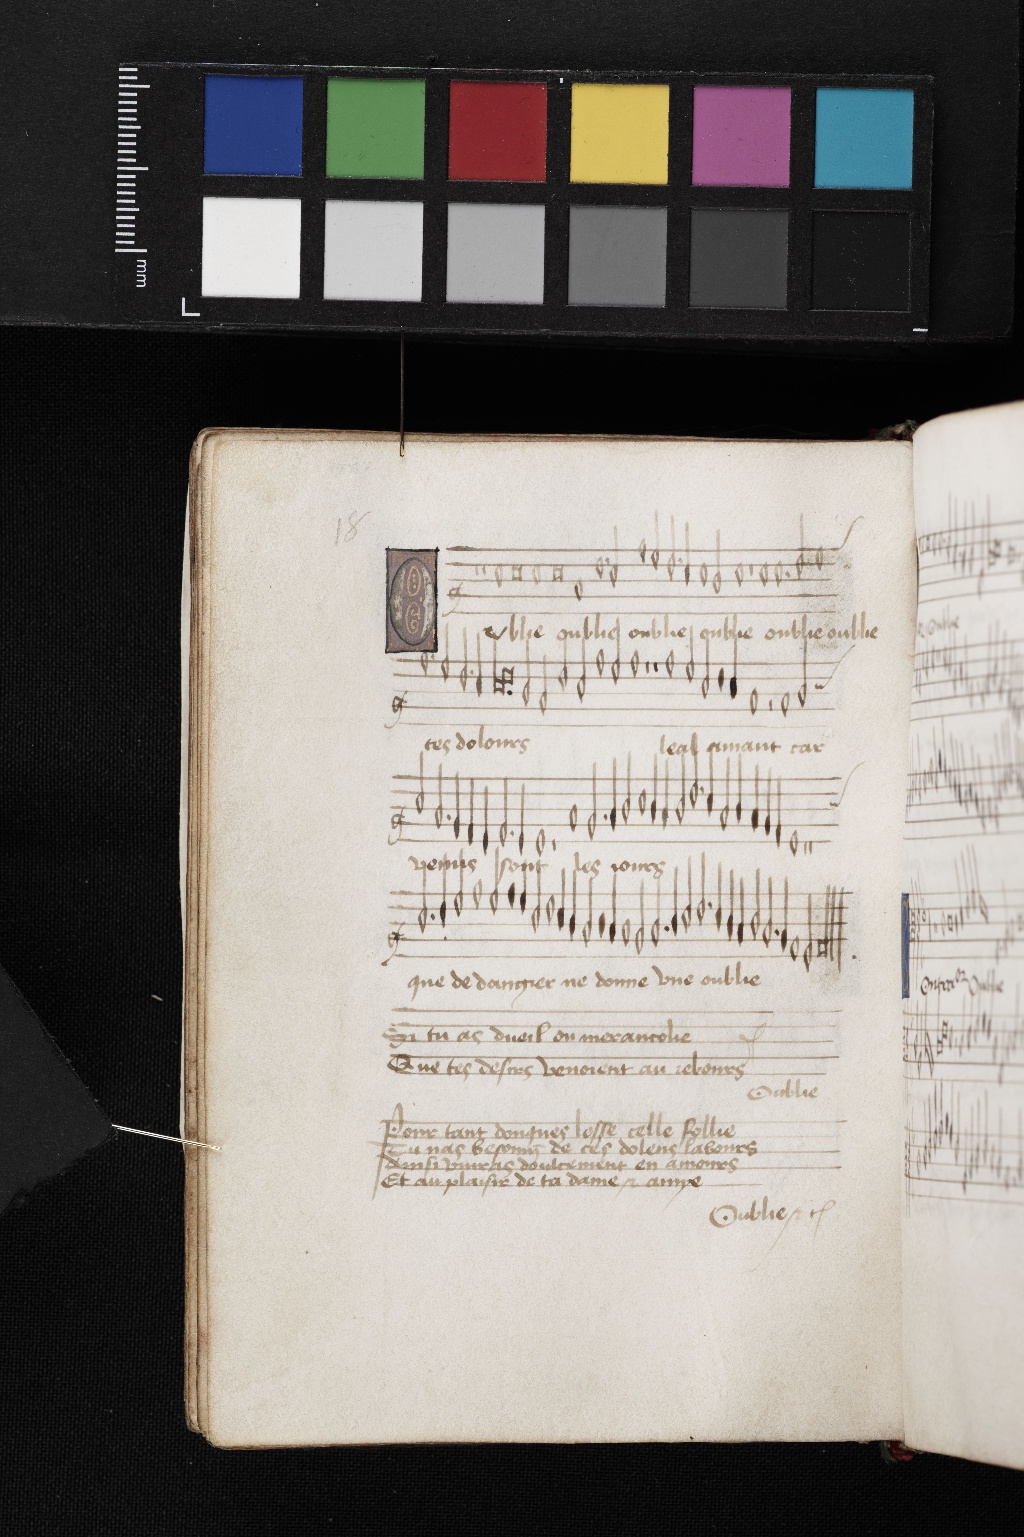 mm
18
Oublie oublie oublie oublie oublie oublie
tes dolours leal amant car
venus sont les iours
que de dangier ne donne vne oublie
Si tu as dueil ou merancolie
Que tes desirs venoient au rebours
Oublie
Pour tant donques lesse celle follie
Tu nas besoing de ces dolens labours
Ainsi viuras doulcement en amours
Et au plaisir de ta dame & amye
Oublie &
Oublie